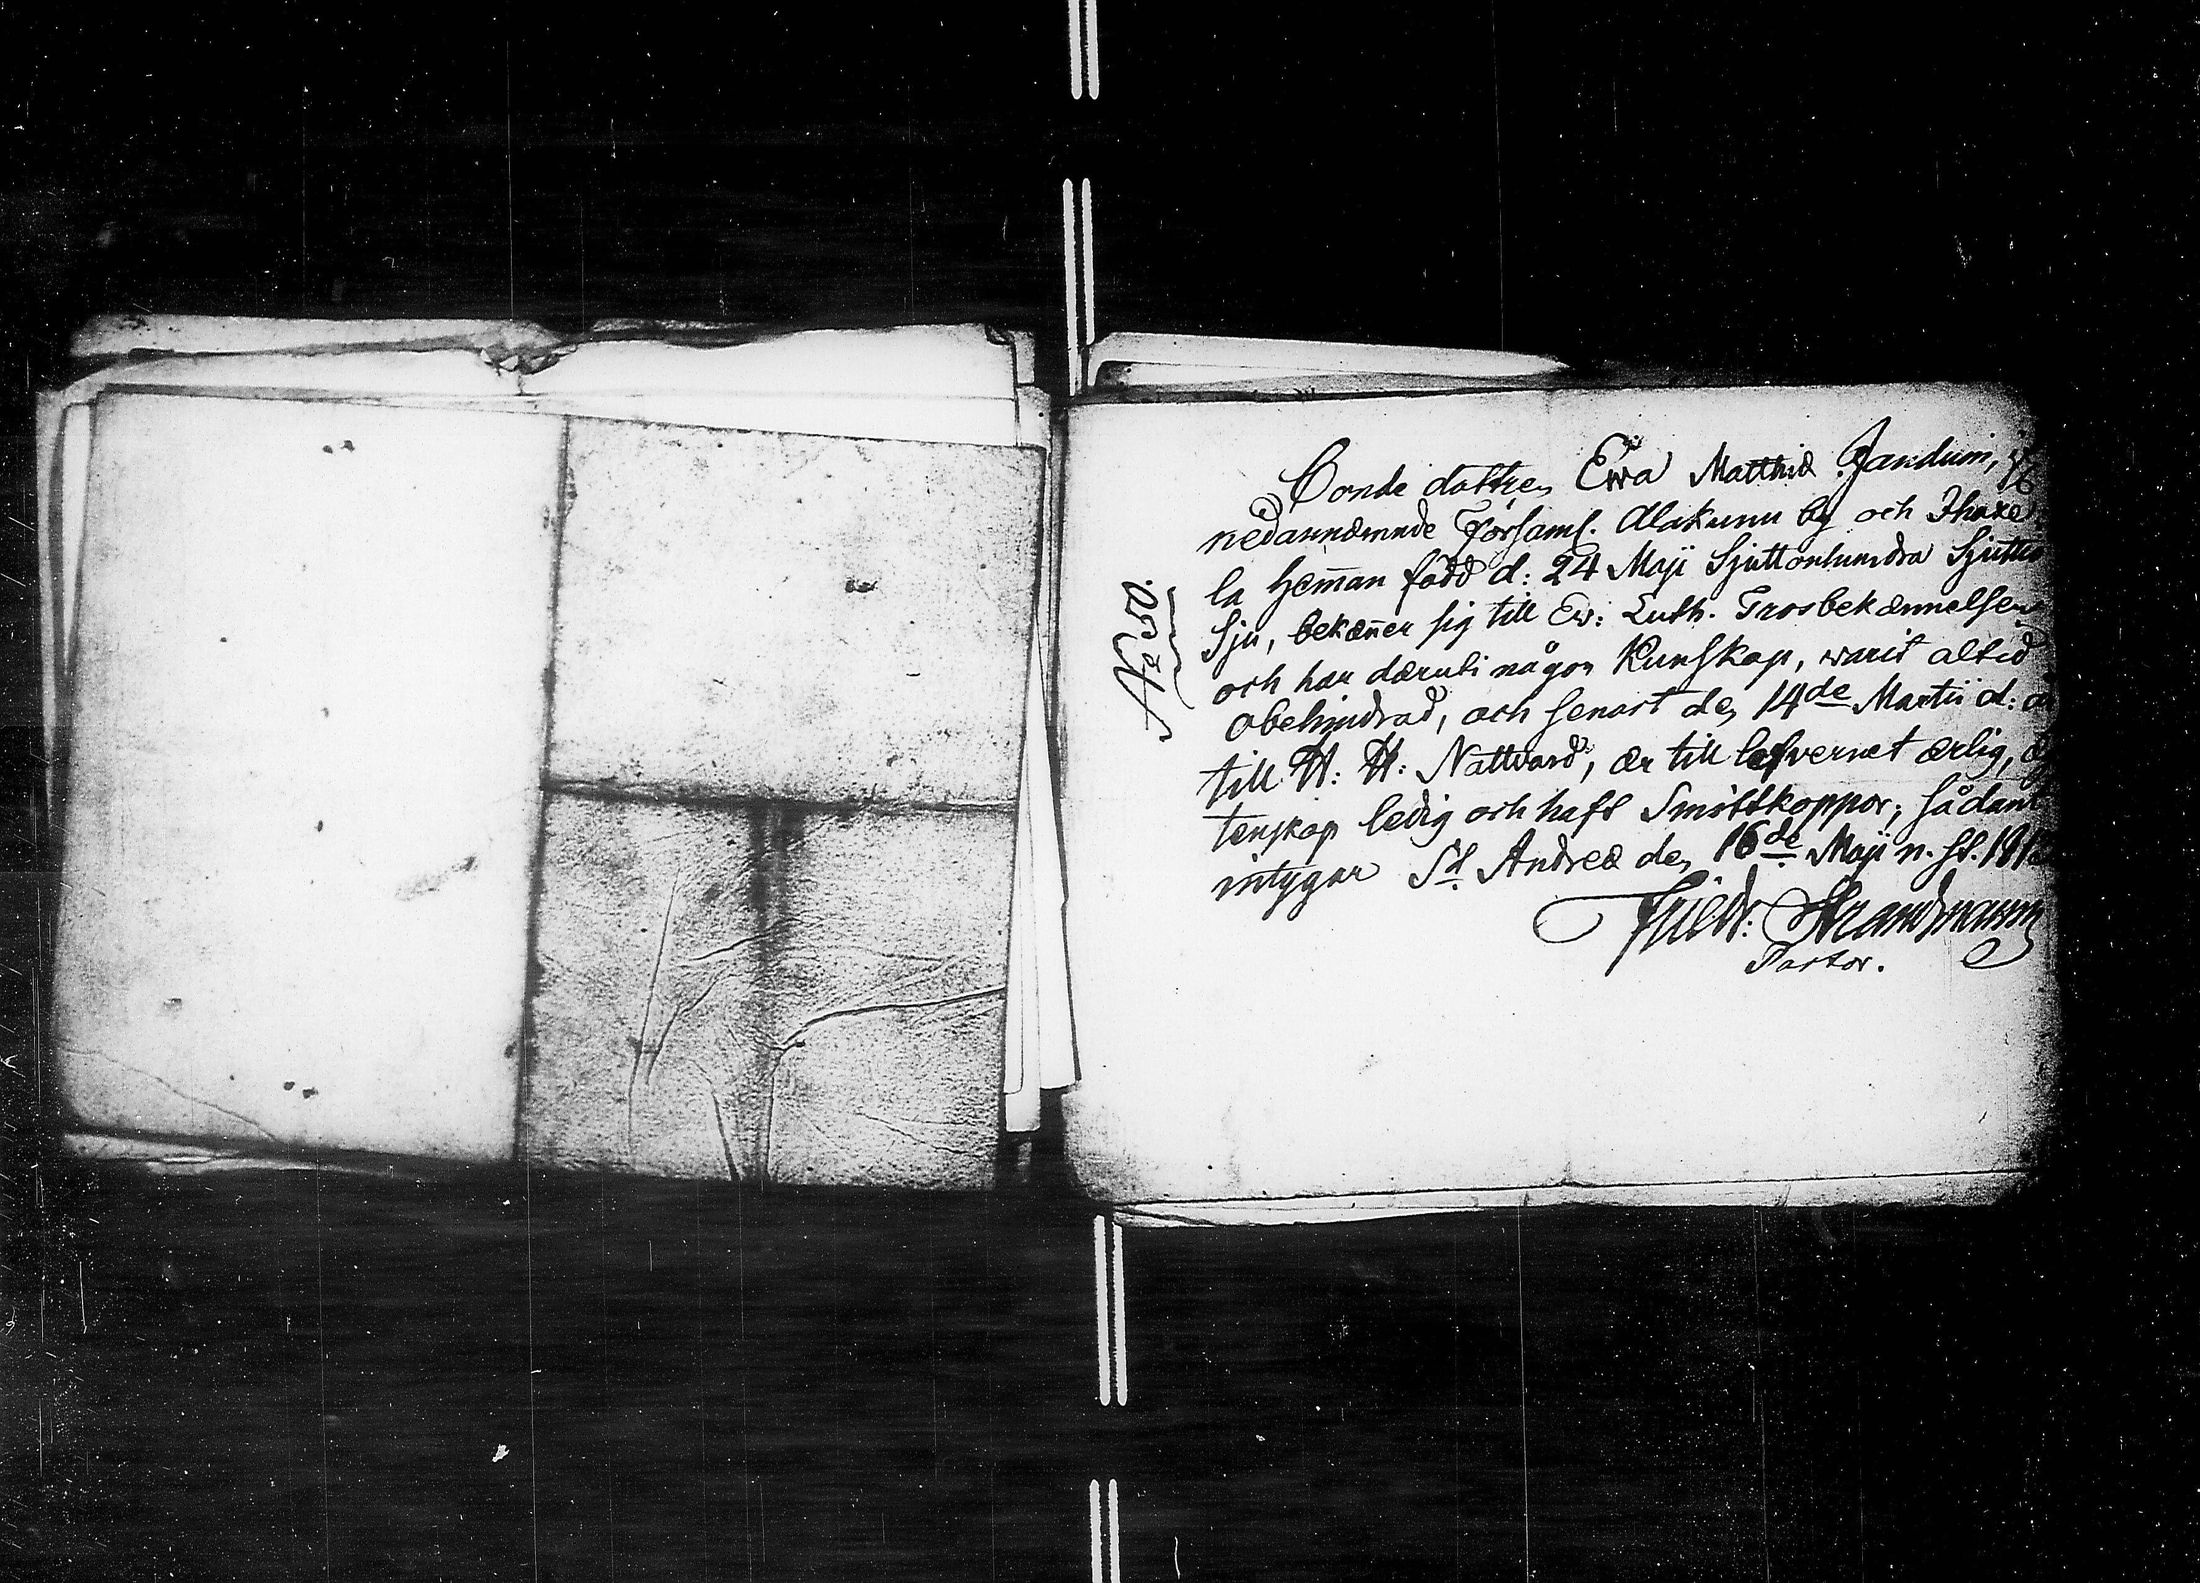 No 50.
Bonde dottren Ewa Matthiæ Janduin,
nedannæmnde Församl. Alakunu by och Ihaxe
la heman född d: 24 Maji Sjuttonhundra Sjuttio
Sju, bekæner sig till Ew: Luth. Trosbekænnelsen
och har däruti någon Kunskap, warit altid
obehindrad, och senast den 14de Martii d: å
till H: H: Nattvard, ær till lefvernet ærlig,
tenskap ledig och haft Småttkoppor; sådant
intygar St. Andreæ den 16de Maji n. st. 181
Friedr: Strandmann
Pastor.